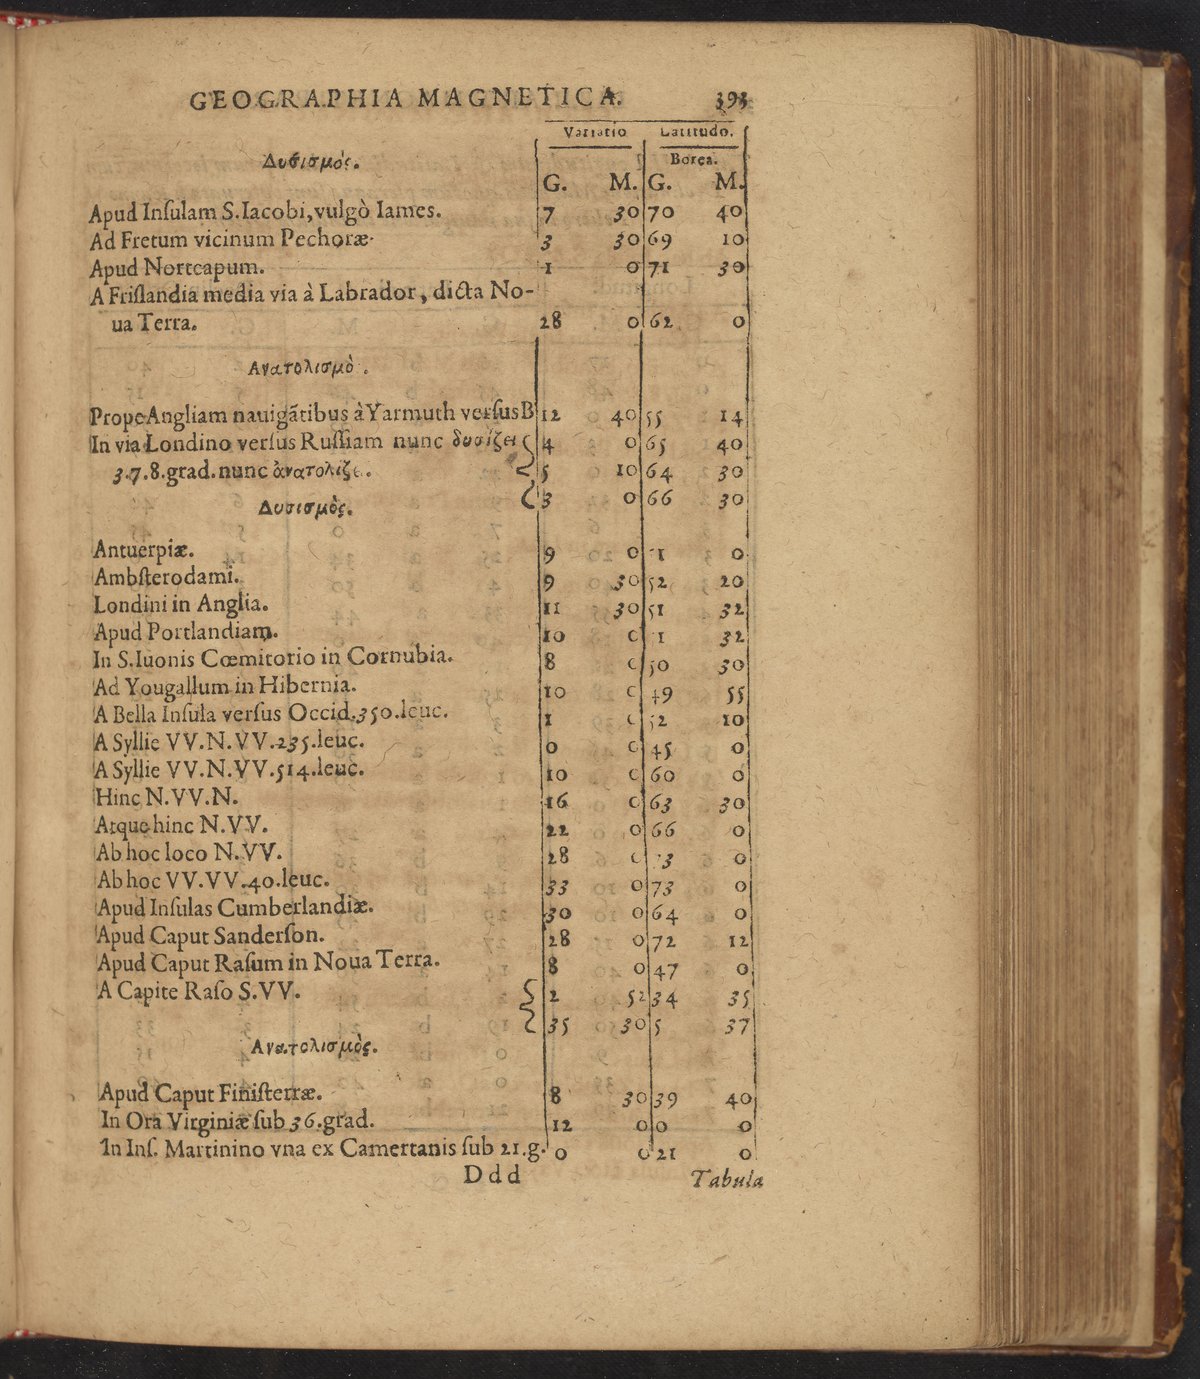 GEOGRAPHIA MAGNETICA. 393
Variatio Latitudo.
Δυσισμὸς. Borea.
G. M. G. M.
Apud Inſulam S. Iacobi, vulgò Iames. 7 30 70 40
Ad Fretum vicinum Pechoræ. 3 30 69 10
Apud Nortcapum. 1 0 71 30
A Friſlandia media via à Labrador, dicta No-
ua Terra. 28 0 62 0
Ανατολισμὸ .
Prope Angliam nauigātibus à Yarmuth verſus B 12 40 55 14
In via Londino verſus Ruſſiam nunc δυσίζει 4 0 65 40
3.7.8.grad.nunc ἀνατολίζε. 5 10 64 30
3 0 66 30
Δυσισμὸς.
Antuerpiæ. 9 0 1 0
Ambſterodami. 9 30 52 20
Londini in Anglia. 11 30 51 32
Apud Portlandiam. 10 0 1 32
In S. Iuonis Cœmitorio in Cornubia. 8 0 50 30
Ad Yougallum in Hibernia. 10 0 49 55
A Bella Inſula verſus Occid. 350. leuc. 1 0 52 10
A Syllie VV. N. VV. 235. leuc. 0 0 45 0
A Syllie VV. N. VV. 514. leuc. 10 0 60 0
Hinc N. VV. N. 16 0 63 30
Atque hinc N. VV. 22 0 66 0
Ab hoc loco N. VV. 28 0 3 0
Ab hoc VV. VV. 40. leuc. 33 0 73 0
Apud Inſulas Cumberlandiæ. 30 0 64 0
Apud Caput Sanderſon. 28 0 72 12
Apud Caput Raſum in Noua Terra. 8 0 47 0
A Capite Raſo S. VV. 2 52 34 35
35 30 5 37
Ανατολισμὸς.
Apud Caput Finiſterræ. 8 30 39 40
In Ora Virginiæ ſub 36. grad. 12 0 0 0
In Inſ. Martinino vna ex Camertanis ſub 21. g. 0 0 21 0
Ddd Tabula